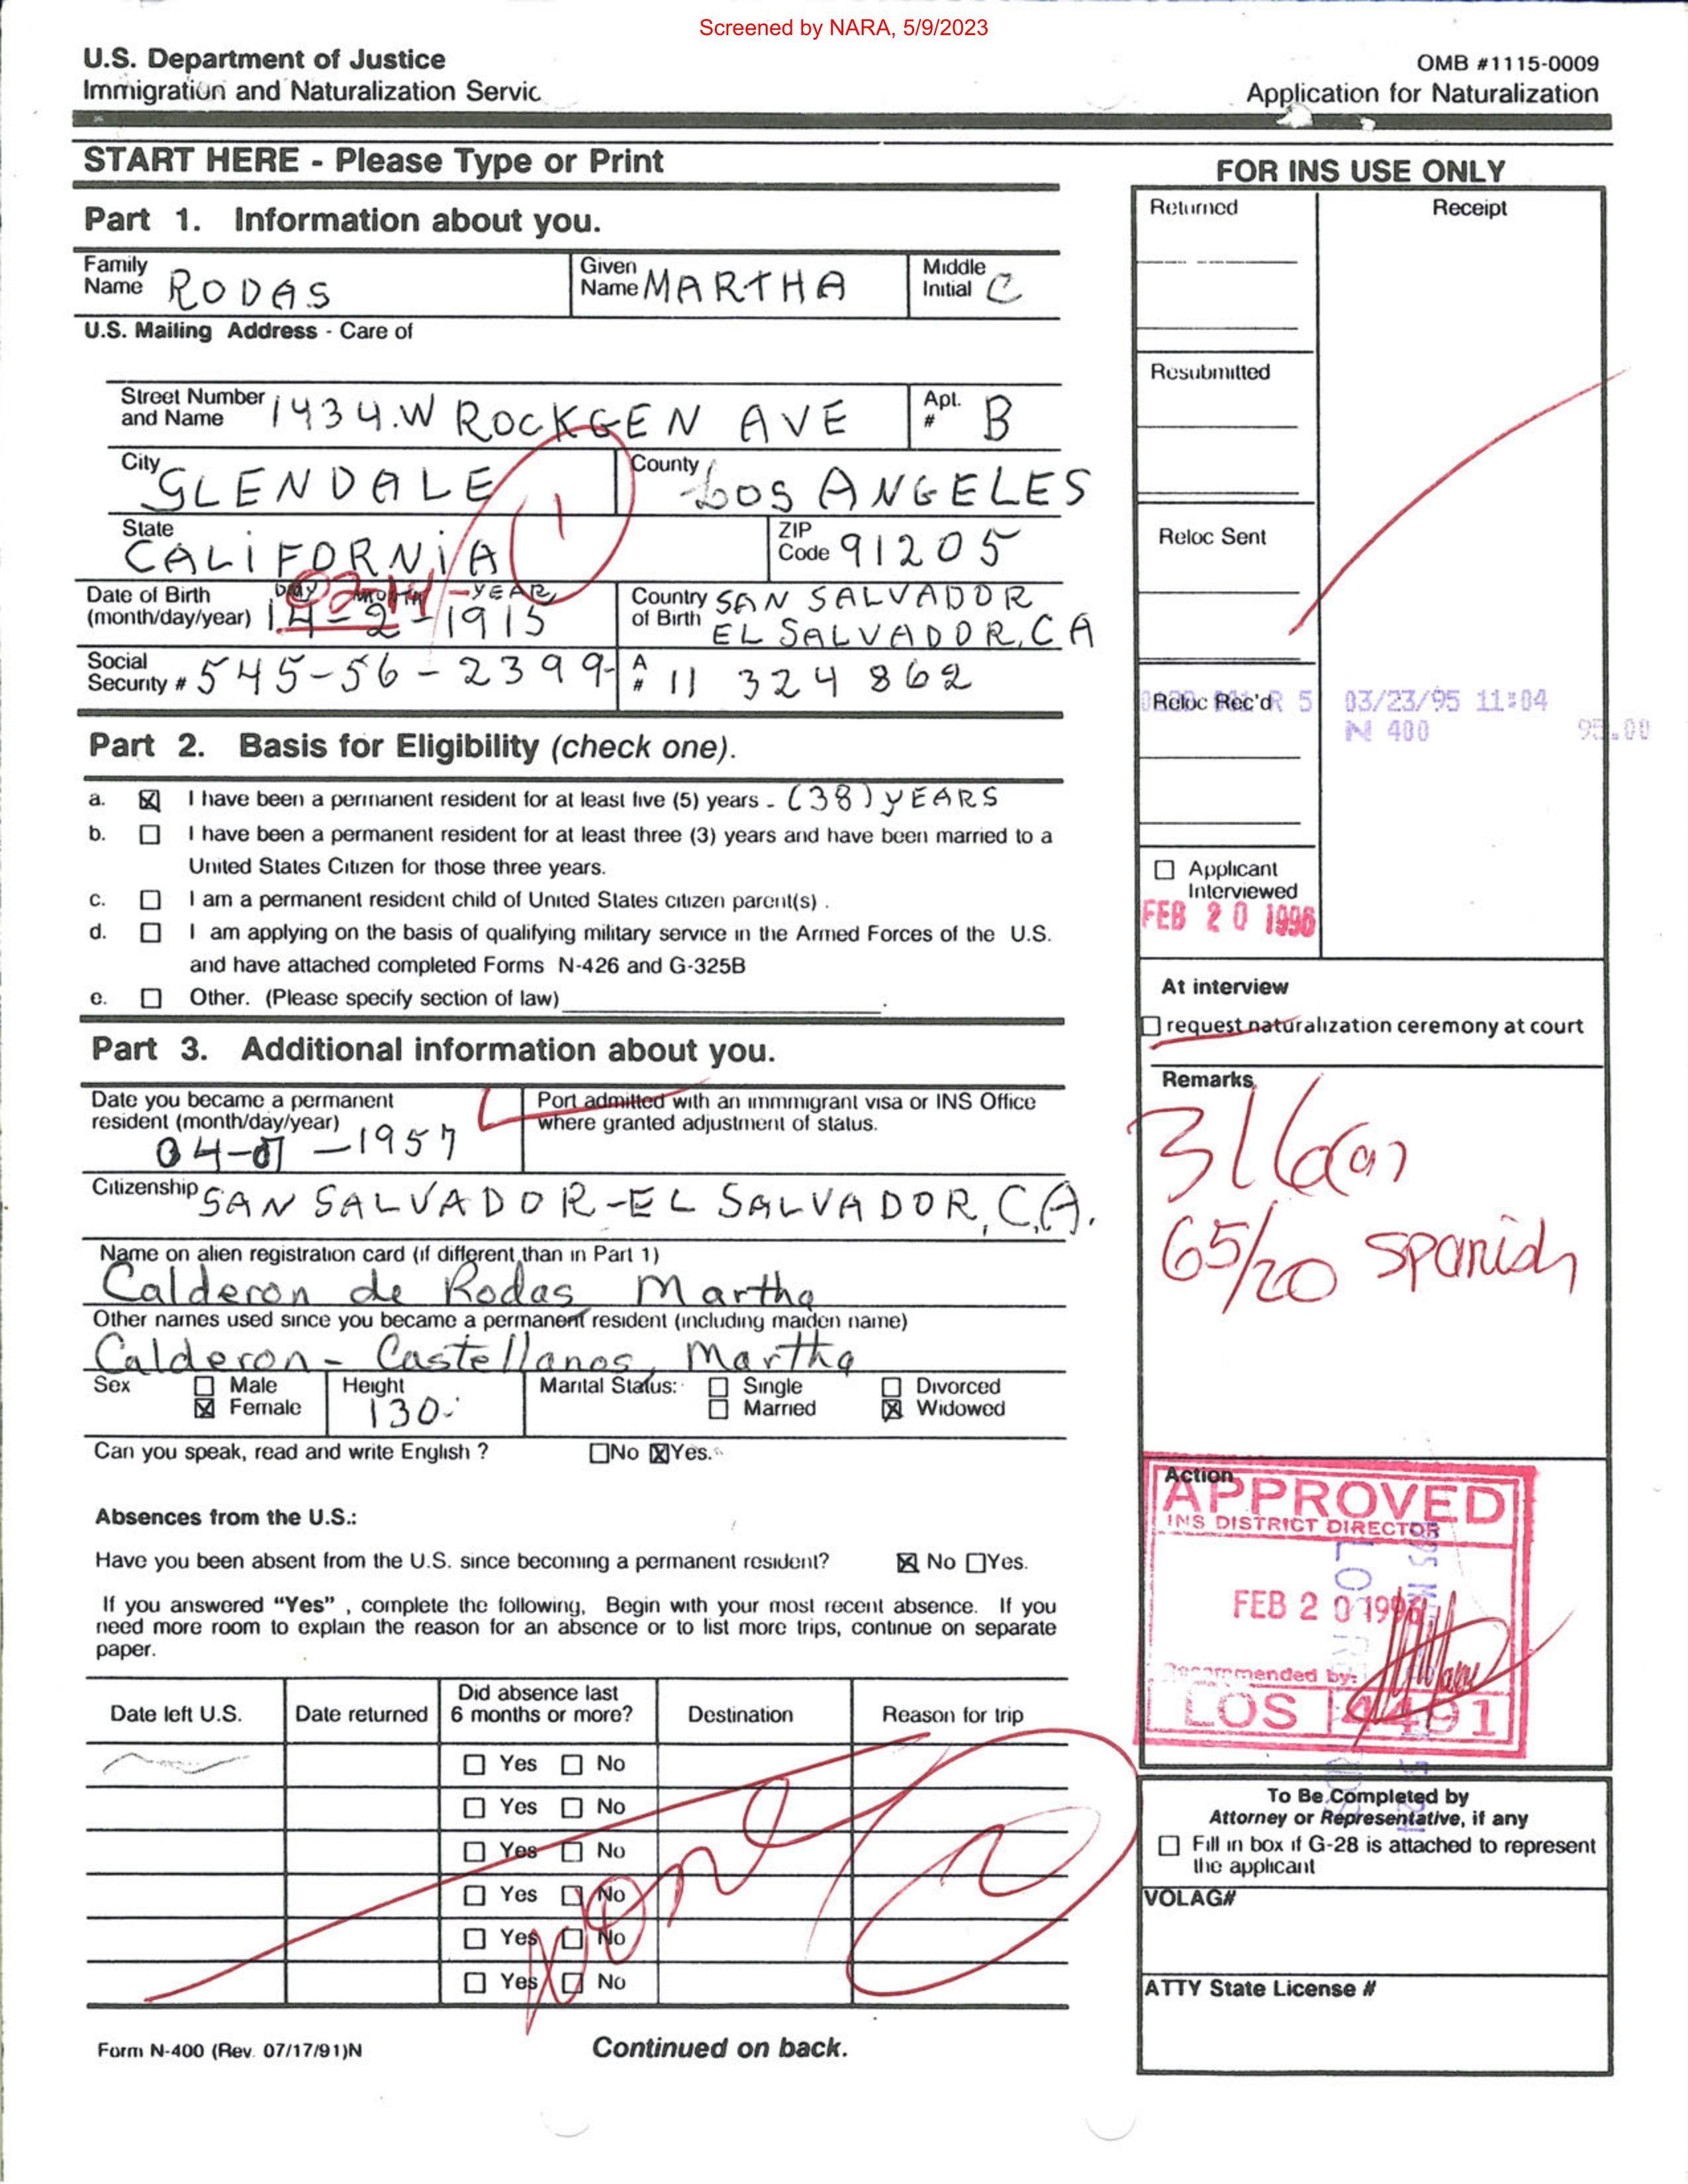 Screened by NARA, 5/9/2023
U.S. Department of Justice
Immigration and Naturalization Servic
OMB #1115-0009
Application for Naturalization
START HERE - Please Type or Print
Part 1. Information about you.
Family Name RODAS
Given Name MARTHA
Middle Initial C
U.S. Mailing Address - Care of
Street Number and Name 1434.W ROCKGEN AVE
Apt. # B
City GLENDALE
County LOS ANGELES
State CALIFORNIA
ZIP Code 91205
Date of Birth (month/day/year) DAY MONTH -YEAR 14-2-1915
02-14
Country of Birth SAN SALVADOR
EL SALVADOR, CA
Social Security # 545-56-2399-
A # 11 324 862
Part 2. Basis for Eligibility (check one).
a. I have been a permanent resident for at least five (5) years - (38) YEARS
b. I have been a permanent resident for at least three (3) years and have been married to a
United States Citizen for those three years.
c. I am a permanent resident child of United States citizen parent(s) .
d. I am applying on the basis of qualifying military service in the Armed Forces of the U.S.
and have attached completed Forms N-426 and G-325B
e. Other. (Please specify section of law)
Part 3. Additional information about you.
Date you became a permanent resident (month/day/year)
-1957
Port admitted with an immmigrant visa or INS Office
where granted adjustment of status.
Citizenship SAN SALVADOR-EL SALVADOR, C.A.
Name on alien registration card (if different than in Part 1)
Calderon de Rodas Martha
Other names used since you became a permanent resident (including maiden name)
Calderon - Castellanos, Martha
Sex Male
Female
Height
130
Marital Status: Single Divorced
Married Widowed
Can you speak, read and write English ? No Yes.
Absences from the U.S.:
Have you been absent from the U.S. since becoming a permanent resident? No Yes.
If you answered "Yes" , complete the following, Begin with your most recent absence. If you
need more room to explain the reason for an absence or to list more trips, continue on separate
paper.
Date left U.S. Date returned Did absence last 6 months or more? Destination Reason for trip
Yes No
Yes No
Yes No
Yes No
Yes No
Yes No
none
Form N-400 (Rev. 07/17/91)N
Continued on back.
FOR INS USE ONLY
Returned
Receipt
Resubmitted
Reloc Sent
Reloc Rec'd
R 5 03/23/95 11:04
N 400 95.00
Applicant
Interviewed
FEB 20 1996
At interview
request naturalization ceremony at court
Remarks
65/20 Spanish
Action
APPROVED
INS DISTRICT DIRECTOR
FEB 20 1996
Recommended by:
LOS 4491
To Be Completed by
Attorney or Representative, if any
Fill in box if G-28 is attached to represent
the applicant
VOLAG#
ATTY State License #